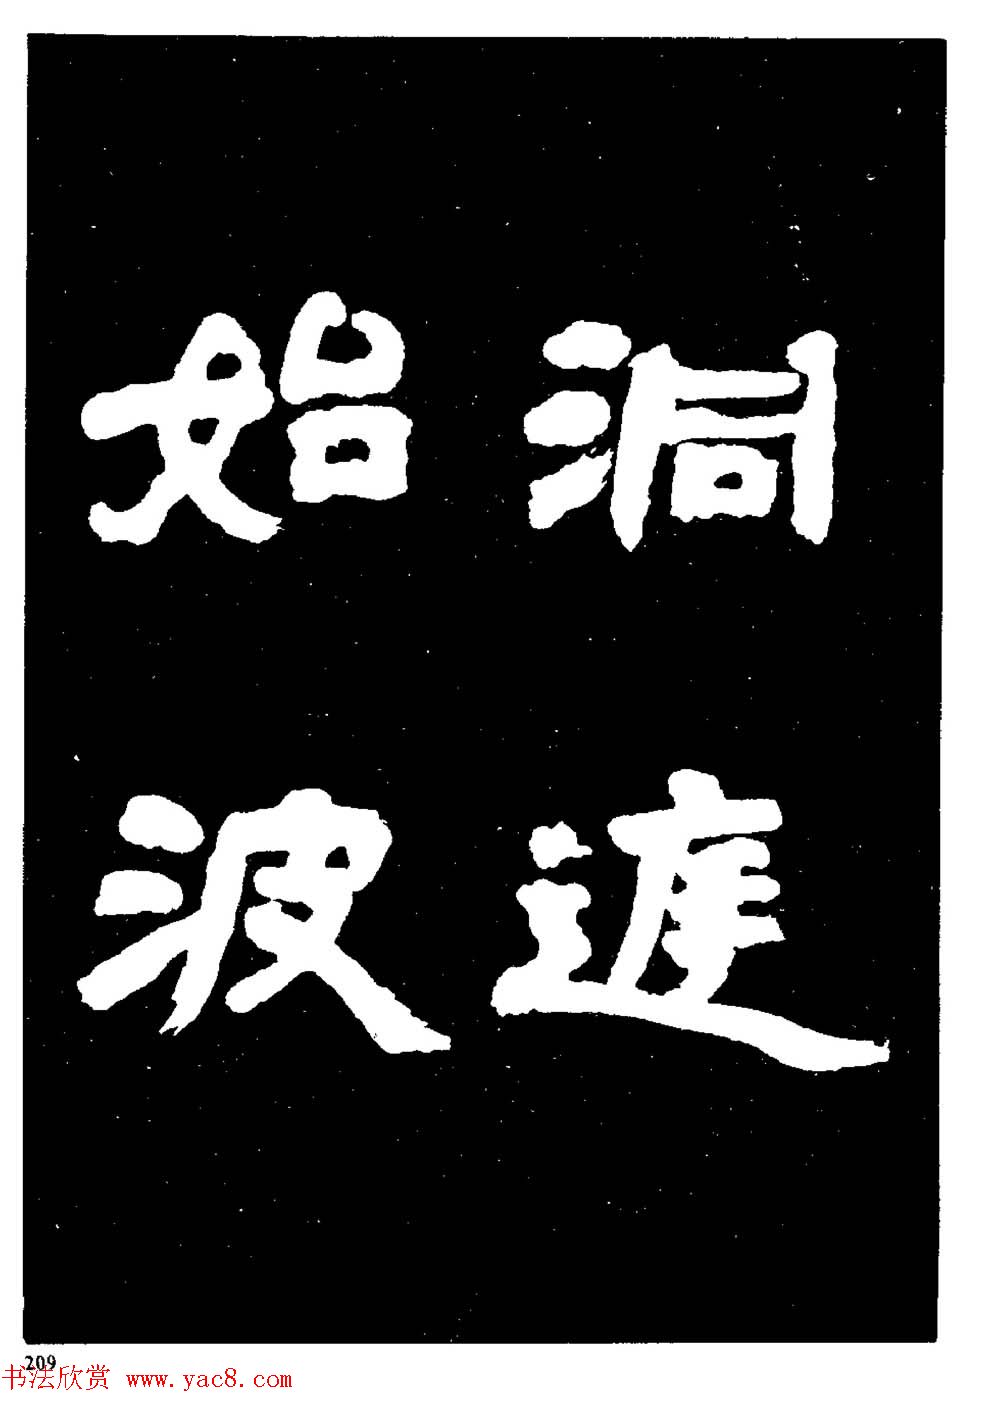 洞進
始波
209
书法欣赏 www.yac8.com